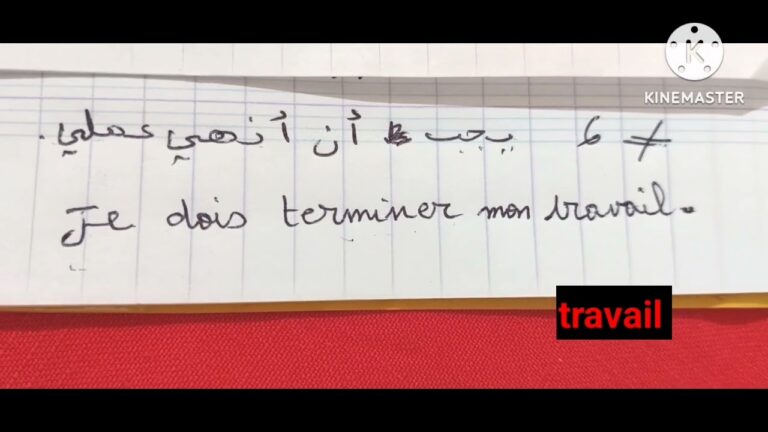 KINEMASTER
6 يجب أن أنهي عملي.
Je dois terminer mon travail.
travail